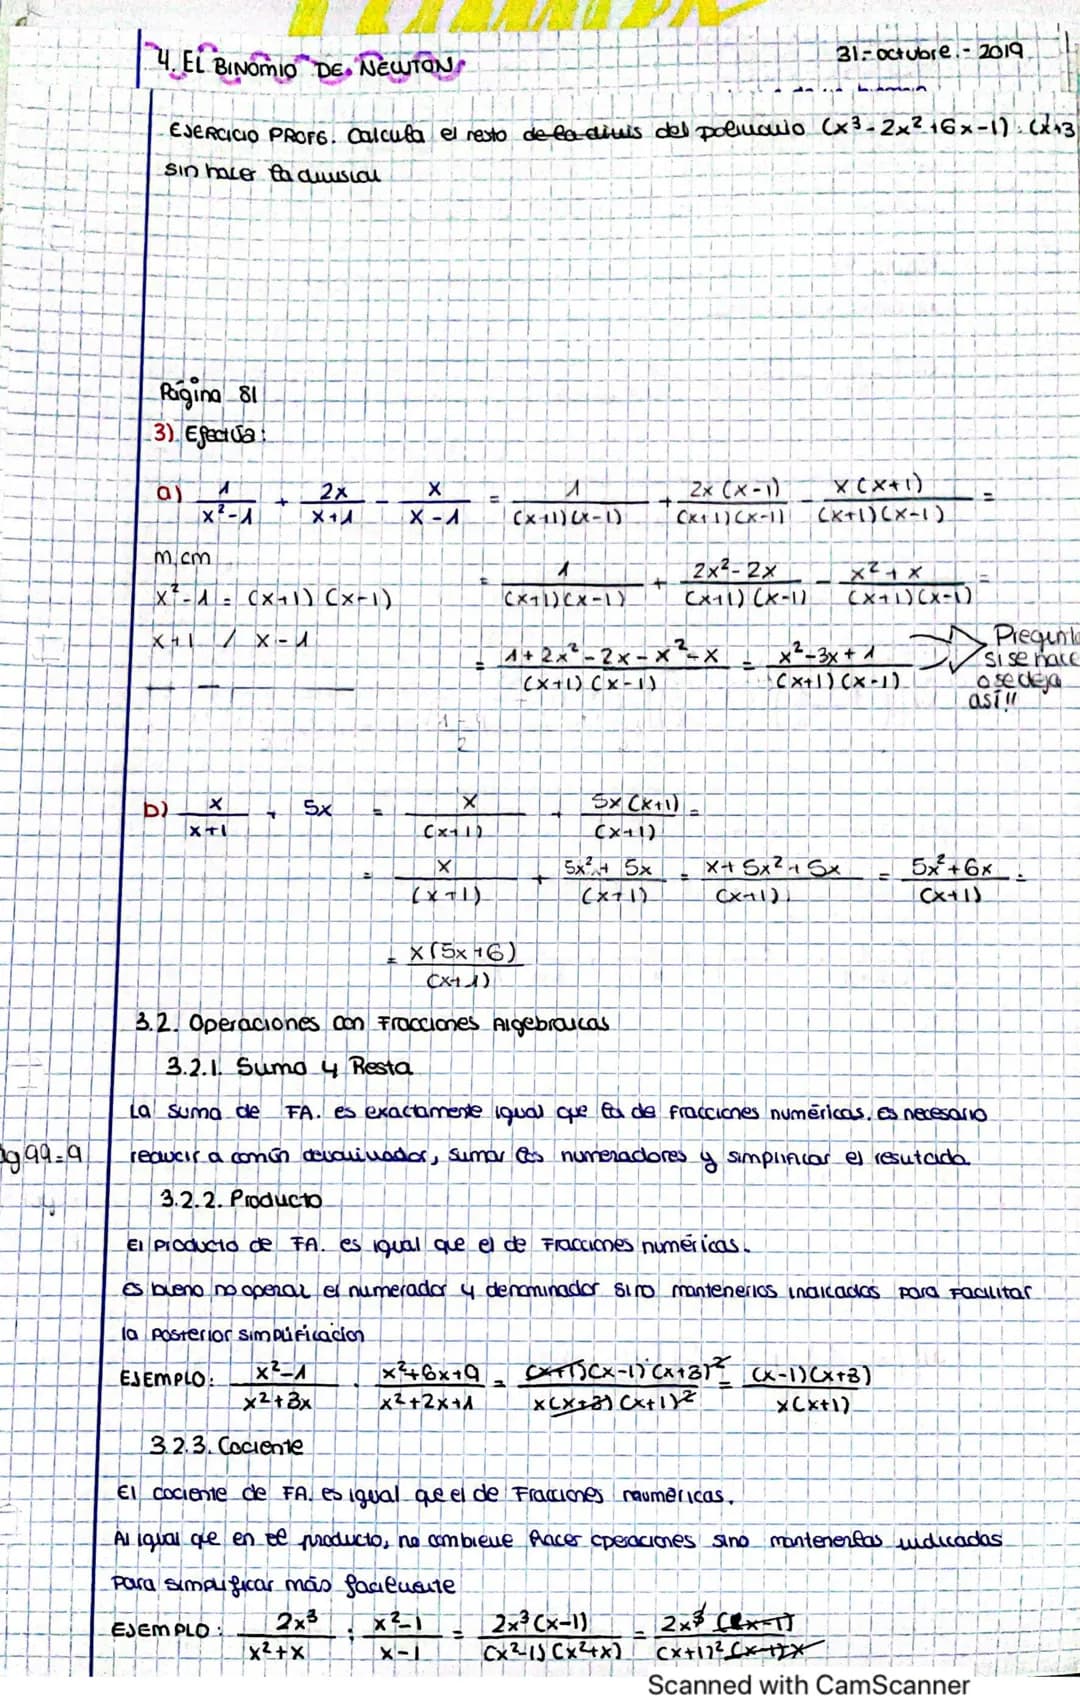 4. EL BINOMIO DE NEWTON
31-octubre.-2019
EJERCICIO PROFG. Calcula el resto de la divis del polinomio (x³-2x²+6x-1):(x+3
sin hacer la división
Página 81
3) Efectúa:
a) 1/(x²-1) + 2x/(x+1) - x/(x-1) = 1/((x+1)(x-1)) + 2x(x-1)/((x+1)(x-1)) - x(x+1)/((x+1)(x-1)) =
m.cm
= 1/((x+1)(x-1)) + (2x²-2x)/((x+1)(x-1)) - (x²+x)/((x+1)(x-1)) =
x²-1 = (x+1)(x-1)
x+1 / x-1
= (1+2x²-2x-x²-x)/((x+1)(x-1)) = (x²-3x+1)/((x+1)(x-1))
Pregunta
si se hace
o se deja
así!!
b) x/(x+1) + 5x = x/(x+1) + 5x(x+1)/(x+1) =
= x/(x+1) + (5x²+5x)/(x+1) = (x+5x²+5x)/(x+1) = (5x²+6x)/(x+1) =
= x(5x+6)/(x+1)
3.2. Operaciones con Fracciones Algebraicas
3.2.1. Suma y Resta
La suma de FA. es exactamente igual que la de fracciones numéricas. es necesario
reducir a común denominador, sumar los numeradores y simplificar el resutado.
3.2.2. Producto
El producto de FA. es igual que el de Fracciones numéricas.
es bueno no operar el numerador y denominador sino mantenerlos indicados para Facilitar
la posterior simplificación
EJEMPLO: (x²-1)/(x²+3x) · (x²+6x+9)/(x²+2x+1) = (x+1)(x-1)(x+3)²/(x(x+3)(x+1)²) = (x-1)(x+3)/(x(x+1))
3.2.3. Cociente
El cociente de FA. es igual que el de Fracciones numéricas.
Al igual que en el producto, no combiene hacer operaciones sino mantenerlas indicadas
para simplificar más facilmente
EJEMPLO: 2x³/(x²+x) : (x²-1)/(x-1) = 2x³(x-1)/((x²-1)(x²+x)) = 2x³(x-1)/((x+1)²(x-1)x)
Scanned with CamScanner